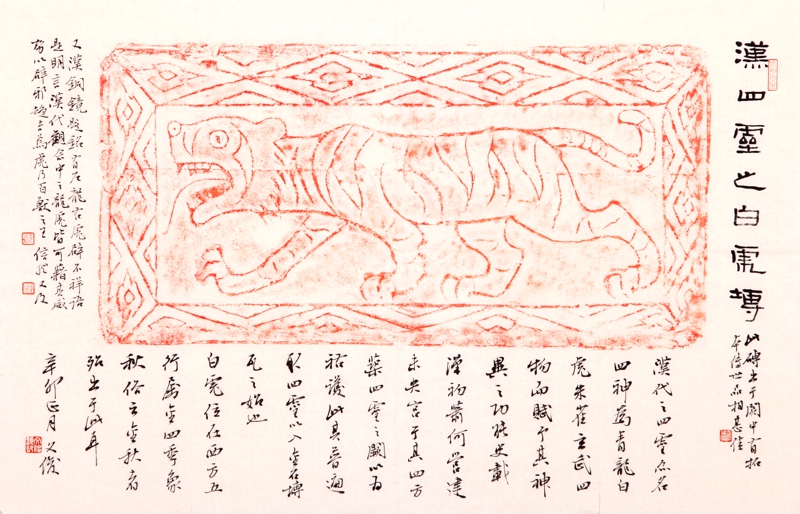 漢四靈之白虎塼
此磚出于關中有拓
本傳世品相甚佳
漢代之四靈亦名
四神為青龍白
虎朱雀玄武四
物而賦予其神
異之功能史載
漢初蕭何營建
未央宮于其四方
築四靈之闕以為
祐護此其普遍
取四靈以入金石塼
瓦之始也
白虎位在西方五
行屬金四季象
秋俗之金秋者
殆出于此耳
辛卯正月
又漢銅鏡既銘有左龍右虎辟不祥語
是明言漢代觀念中之龍虎皆可藉其威
力以辟邪
為虎乃百獸之王
又及